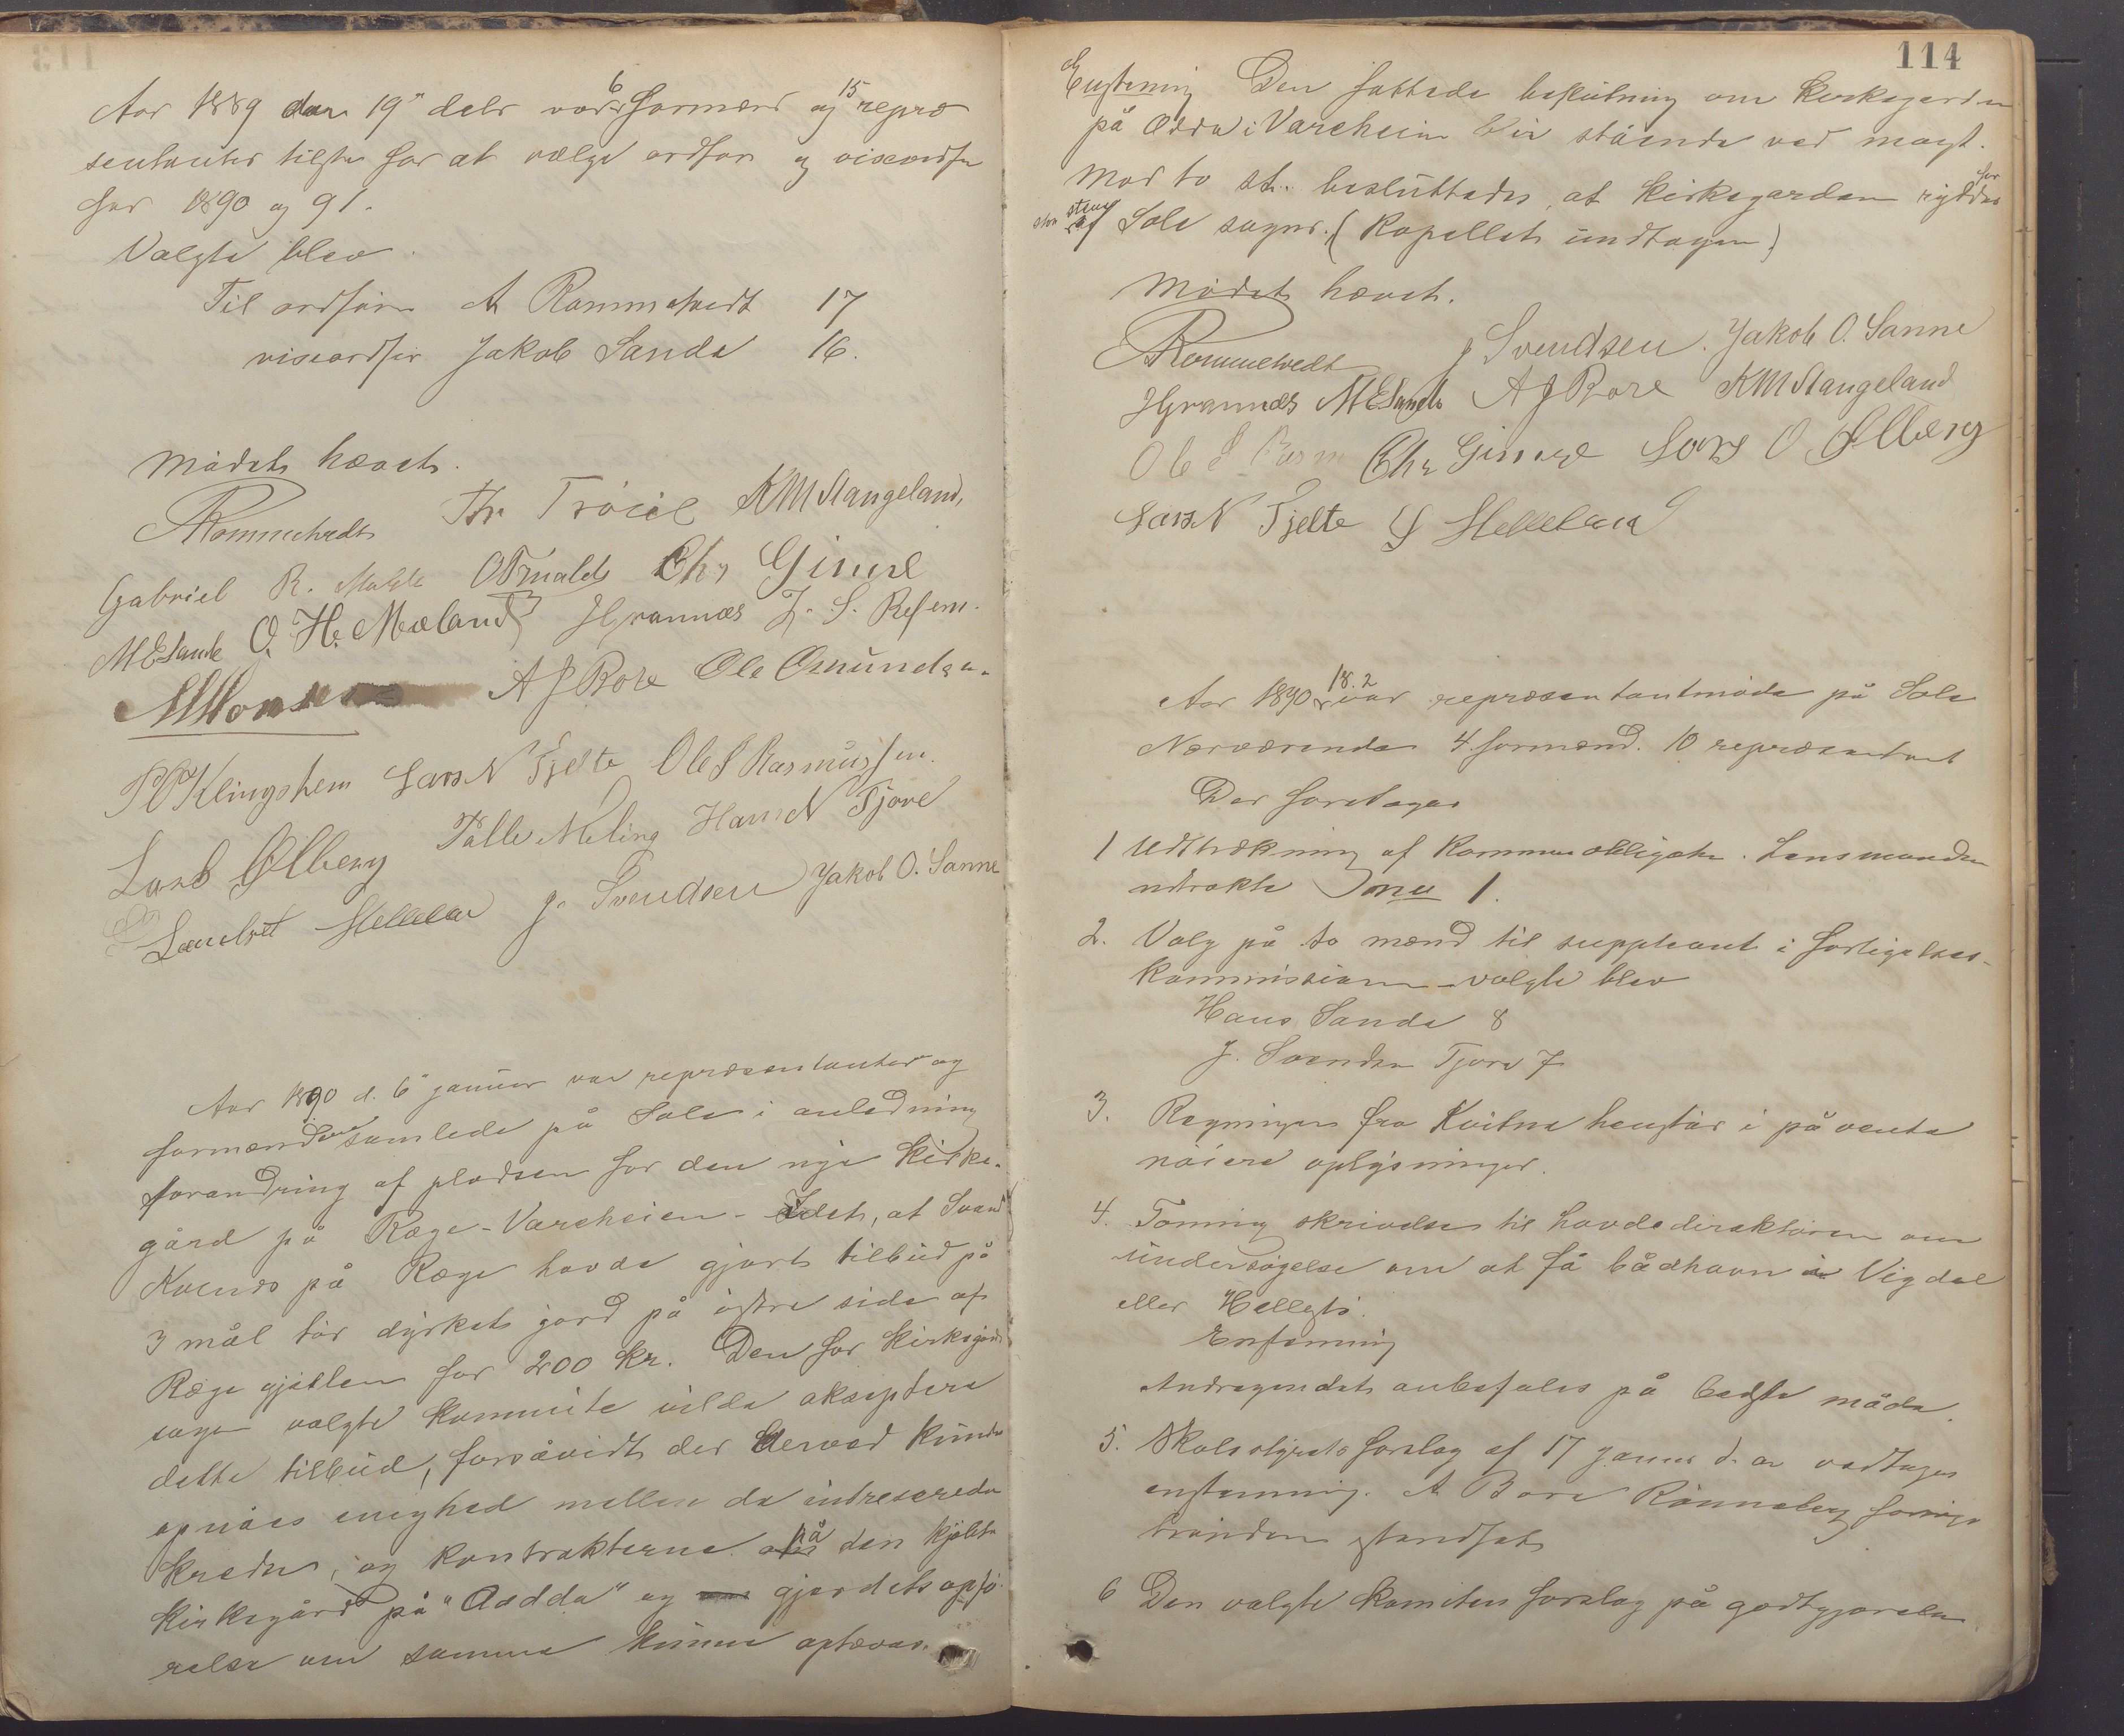 Aar 1889 den 19" debr var 6 formænd og 15 repræ
sentanter tilste for at vælge ordfør og viseordfør
for 1890 og 91.
Valgte blev
Til ordfører A Rommetvedt 17
viseordfør Jakob Sande 16.
Mødet hævet.
ARommetvedt Th. KMStangeland,
Gabriel R. OTnalds Chr Gimre
MESande O. H. Mæland HGrannæs
AJBore Ole Osmundsen
POKlingshem Lars N Tjelte Ole S Rasmussen.
Lars Ølberg Palle Meling Hans N Tjore
Helleland J. Svendsen Jakob O. Sanne
Aar 1890 d. 6 januar var repræsentanter og
formændene samlede på Sole i anledning
forandring af pladsen for den nye kirke-
gård på Ræge-Vareheien - Idet, at Svend
Kvends på Ræge havde gjort tilbud på
3 mål tør dyrket jord på østre side af
Ræge gjeilen for 200 kr. Den for kirkegårds
sagen valgte kommite vilde akseptere
dette tilbud, forsåvidt der derved kunde
opnåes enighed mellem de intreserede
kredse, og kontrakterne på den kjøbte
kirkegård på "Aadda" og gjerdets opfø-
relse om samme kunne ophæves.
114
Enstemig Den fattede beslutning om kirkegarden
på Odda i Vareheim bør stående ved magt.
Mod to st. besluttedes, at kirkegarden ryddes for
sten af Sole sogn. (Kapellets undtagen)
Mødet hævet.
ARommetvedt J Svendsen. Jakob O. Sanne
HGrannæs MESande AJBore KMStangeland
Ole S Rasm Chr Gimre Lars O Ølberg
Lars N Tjelte Helleland
Aar 1890 18.2 var repræsentantmøde på Sole
Nærværende 4 formænd. 10 repræsentant
Der foretages
1 Udtrækning af Kommuneobligation. Lensmanden
udtrakte No 1.
2. Valg på to mænd til suppleant i forligelses-
kommissionen - valgte blev
Hans Sande 8
J. Svendsen Tjore 7
3. Regningen fra Kvitne henstår i påvente
nøiere oplysninger.
4. Tanning skrivelse til havnedirektøren om
undersøgelse om at få bådhavn i Vigdel
eller Hellestø.
Enstemmig
Andragendet anbefales på bedste måde.
5. Skolestyrets forslag af 17 januar d. a. vedtages
enstemmig. A Bore Rønneberg forrige
brønden standset
6 Den valgte komites forslag på godtgjørelse